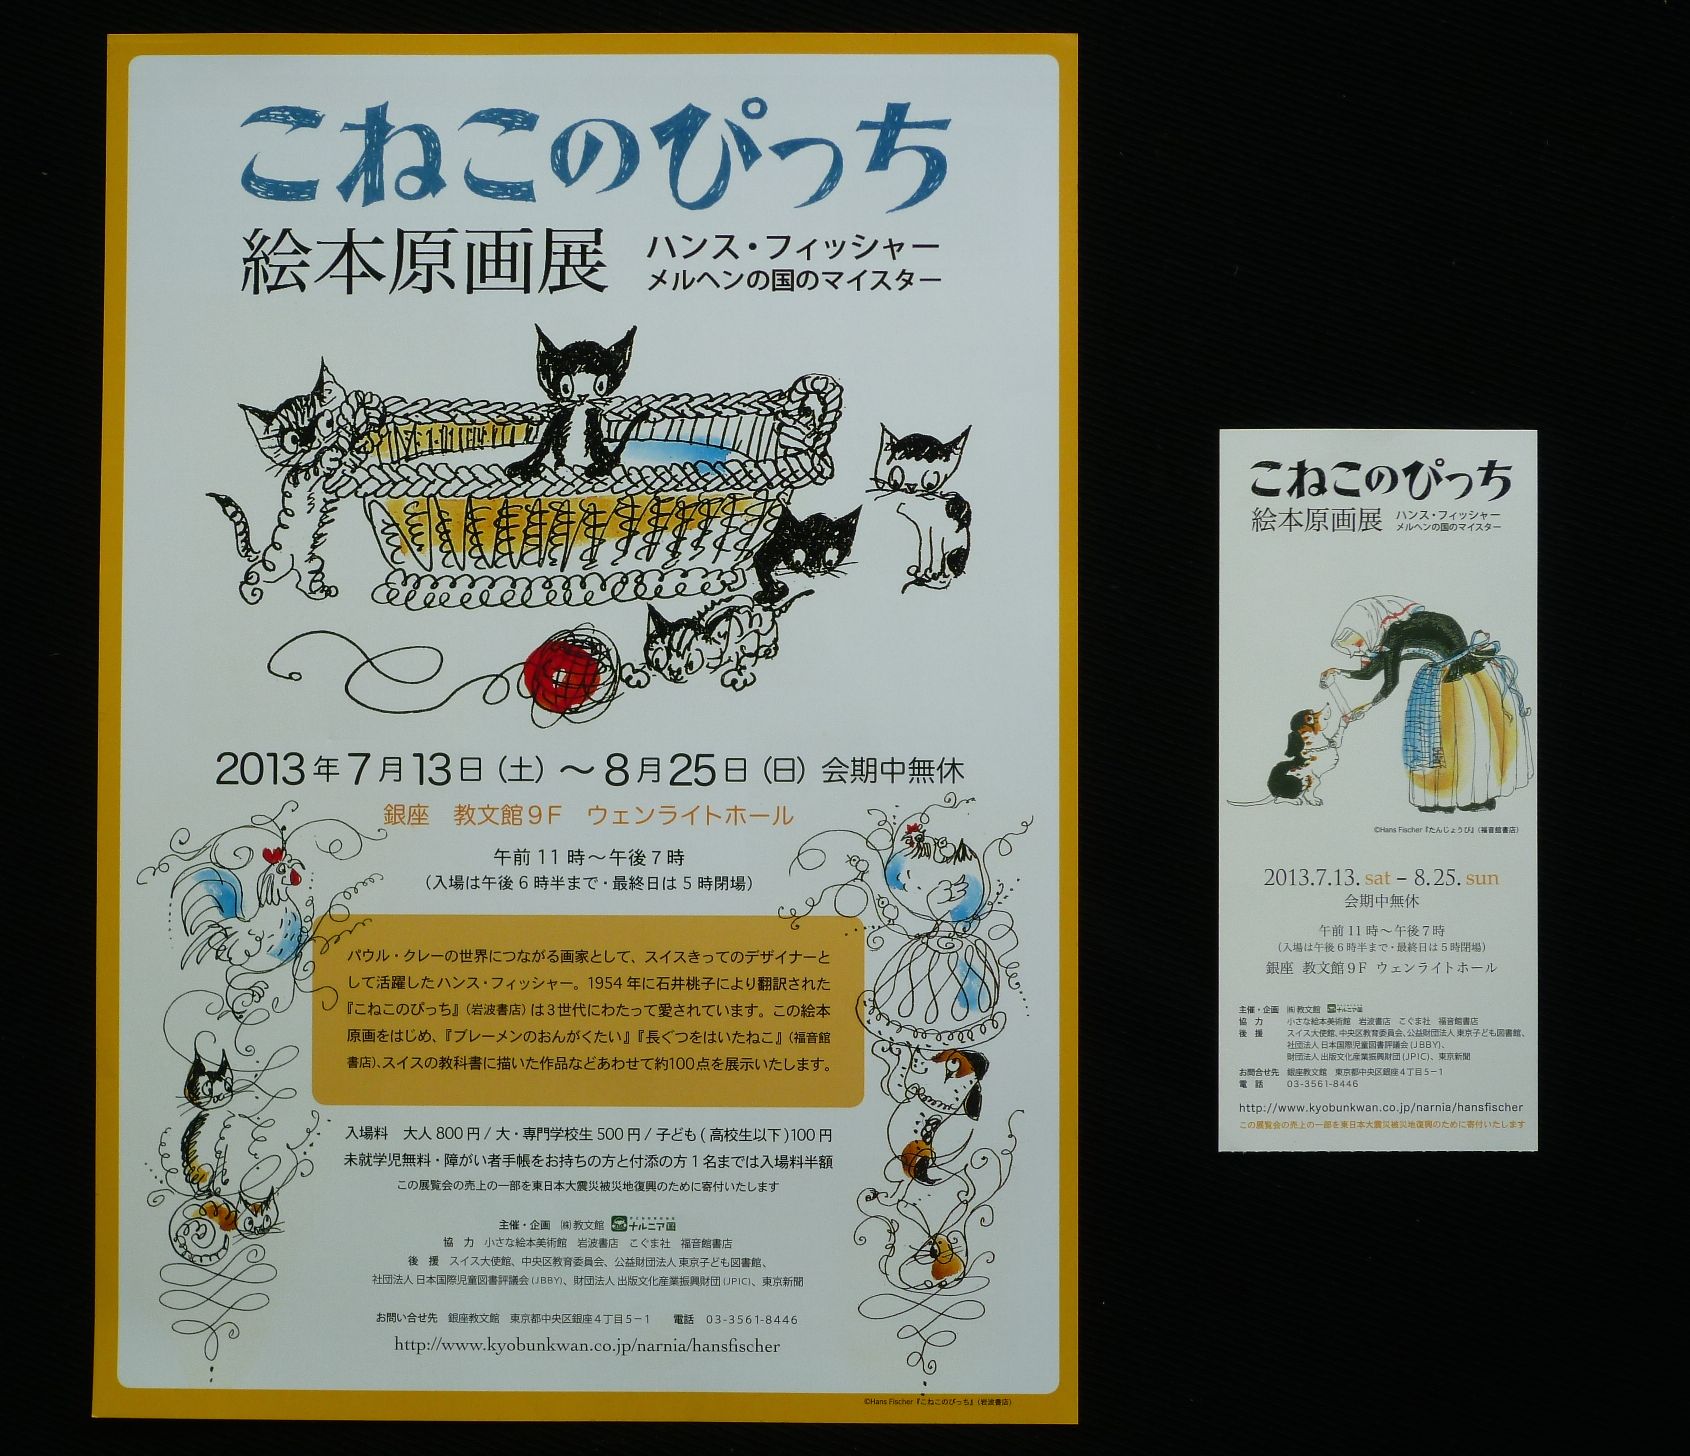 こねこのぴっち
絵本原画展
ハンス・フィッシャー
メルヘンの国のマイスター
2013年7月13日（土）～8月25日（日）会期中無休
銀座　教文館9F　ウェンライトホール
午前11時～午後7時
（入場は午後6時半まで・最終日は5時閉場）
パウル・クレーの世界につながる画家として、スイスきってのデザイナーと
して活躍したハンス・フィッシャー。1954年に石井桃子により翻訳された
『こねこのぴっち』（岩波書店）は3世代にわたって愛されています。この絵本
原画をはじめ、『ブレーメンのおんがくたい』『長ぐつをはいたねこ』（福音館
書店）、スイスの教科書に描いた作品などあわせて約100点を展示いたします。
入場料　大人800円/大・専門学校生500円/子ども(高校生以下)100円
未就学児無料・障がい者手帳をお持ちの方と付添の方1名までは入場料半額
この展覧会の売上の一部を東日本大震災被災地復興のために寄付いたします
主催・企画　㈱教文館　ナルニア国
協　力　小さな絵本美術館　岩波書店　こぐま社　福音館書店
後　援　スイス大使館、中央区教育委員会、公益財団法人東京子ども図書館、
社団法人日本国際児童図書評議会(JBBY)、財団法人出版文化産業振興財団(JPIC)、東京新聞
お問い合せ先　銀座教文館　東京都中央区銀座4丁目5－1　電話　03-3561-8446
http://www.kyobunkwan.co.jp/narnia/hansfischer
©Hans Fischer『こねこのぴっち』（岩波書店）
こねこのぴっち
絵本原画展
ハンス・フィッシャー
メルヘンの国のマイスター
©Hans Fischer『たんじょうび』（福音館書店）
2013.7.13. sat – 8.25. sun
会期中無休
午前11時～午後7時
（入場は午後6時半まで・最終日は5時閉場）
銀座　教文館9F　ウェンライトホール
主催・企画　㈱教文館　ナルニア国
協　力　小さな絵本美術館　岩波書店　こぐま社　福音館書店
後　援　スイス大使館、中央区教育委員会、公益財団法人東京子ども図書館、
社団法人日本国際児童図書評議会(JBBY)、
財団法人出版文化産業振興財団(JPIC)、東京新聞
お問合せ先　銀座教文館　東京都中央区銀座4丁目5－1
電　話　03-3561-8446
http://www.kyobunkwan.co.jp/narnia/hansfischer
この展覧会の売上の一部を東日本大震災被災地復興のために寄付いたします